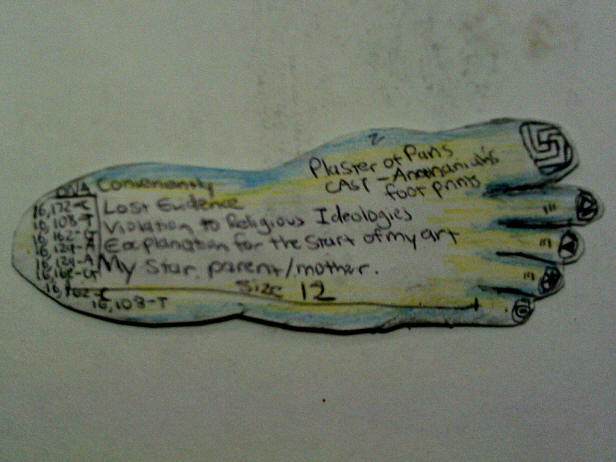 Plaster of Paris
CAST - Anunanaki's
foot prints
DNA
16,172-C
16,108-T
16,162-G
16,129-A
16,129-A
16,162-G
16,162-C
16,108-T
Conveniently
Lost Evidence
Violation to Religious Ideologies
Explanation for the Start of my art
My Star parent/mother.
Size 12